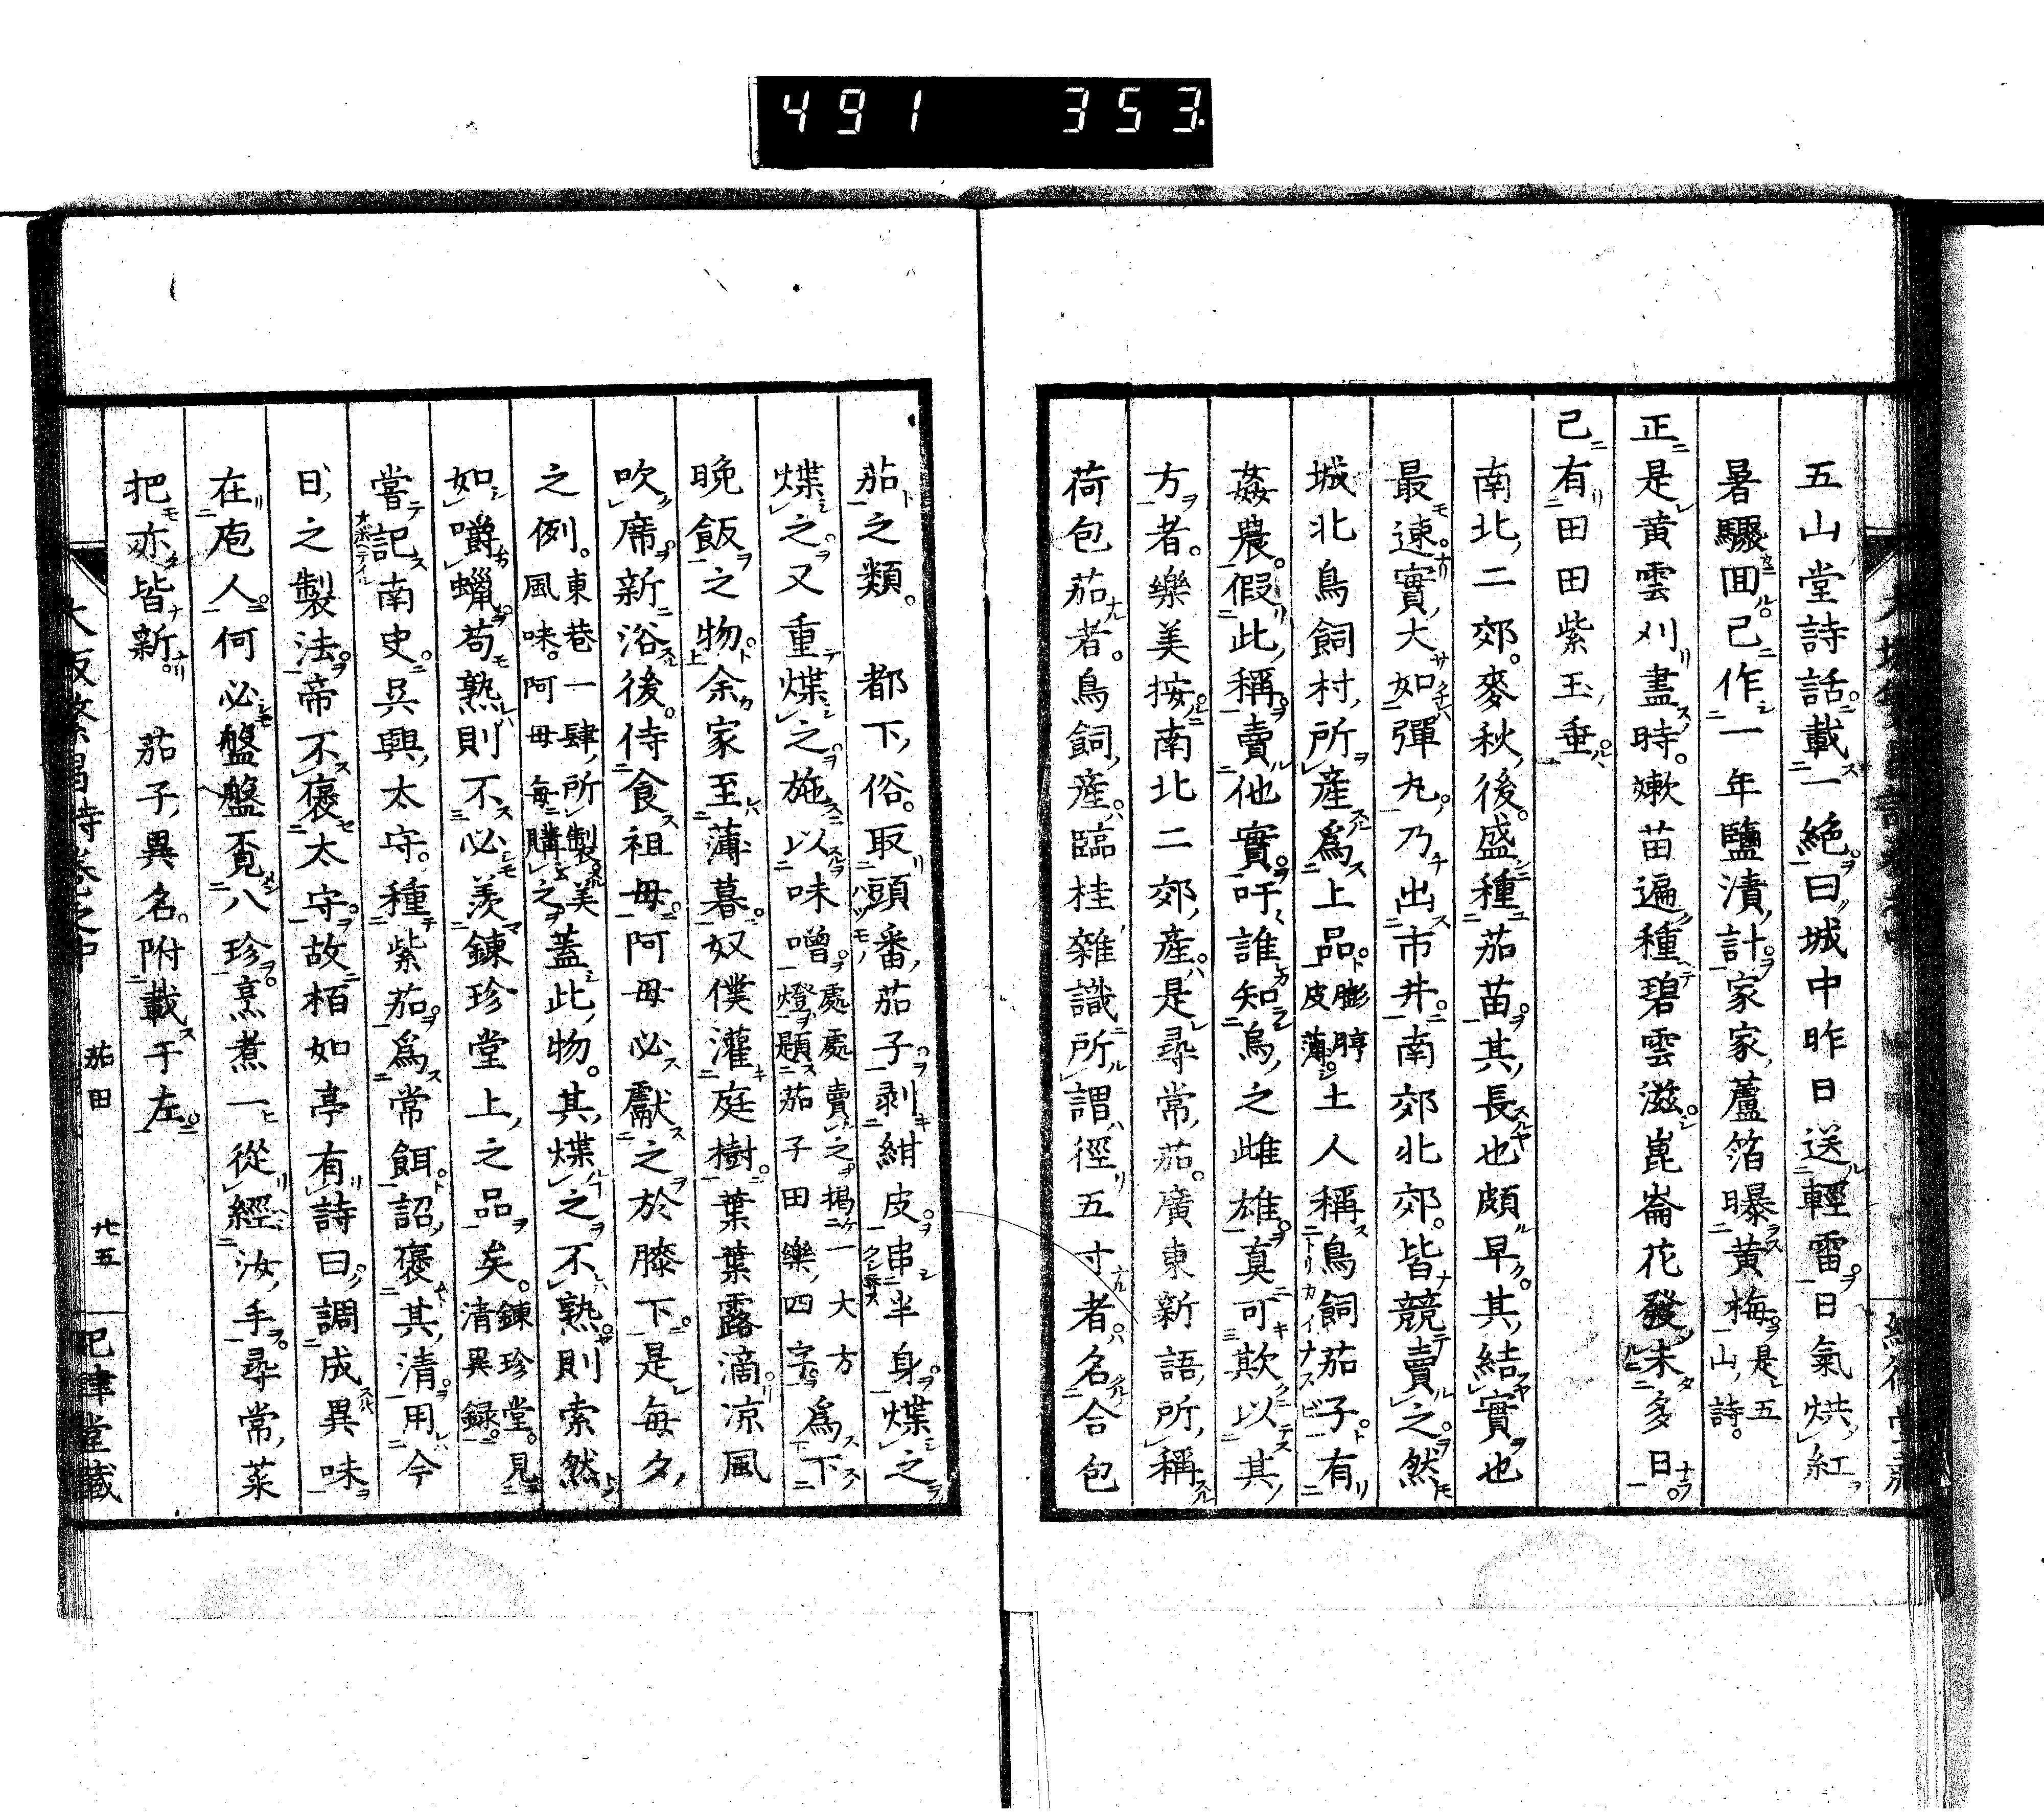 491 353
五山堂詩話載一絶曰城中昨日送輕雷日氣烘紅
暑驟回已作一年鹽漬計家家蘆箔曝黄梅是五山詩
正是黄雲刈盡時嫩苗遍種碧雲滋崑崙花發未多日
已有田田紫玉垂
南北二郊麥秋後盛種茄苗其長也頗早其結實也
最速實大如彈丸乃出市井南郊北郊皆競賣之然
城北鳥飼村所産爲上品膨脝皮薄土人稱鳥飼茄子有
姦農假此稱賣他實吁誰知烏之雌雄真可欺以其
方者樂美按南北二郊産是尋常茄廣東新語所稱
荷包茄者鳥飼産臨桂雜識所謂徑五寸者名合包
茄之類　都下俗取頭番茄子剥紺皮串半身煠之
煠之又重煠之施以味噌處處賣之揭一大方燈題茄子田樂四字爲下
晩飯之物余家至薄暮奴僕灌庭樹葉葉露滴凉風
吹席新浴後侍食祖母阿母必獻之於膝下是毎夕
之例東巷一肆所製美風味阿母毎購之蓋此物其煠之不熟則索然
如嚼蠟苟熟則不必羨錬珍堂上之品矣錬珍堂見清異録
嘗記南史呉興太守種紫茄爲常餌詔褒其清用今
日之製法帝不褒太守故栢如亭有詩曰調成異味
在庖人何必盤盤覔八珍烹煮一從經汝手尋常菜
把亦皆新　茄子異名附載于左
茄田　廿五